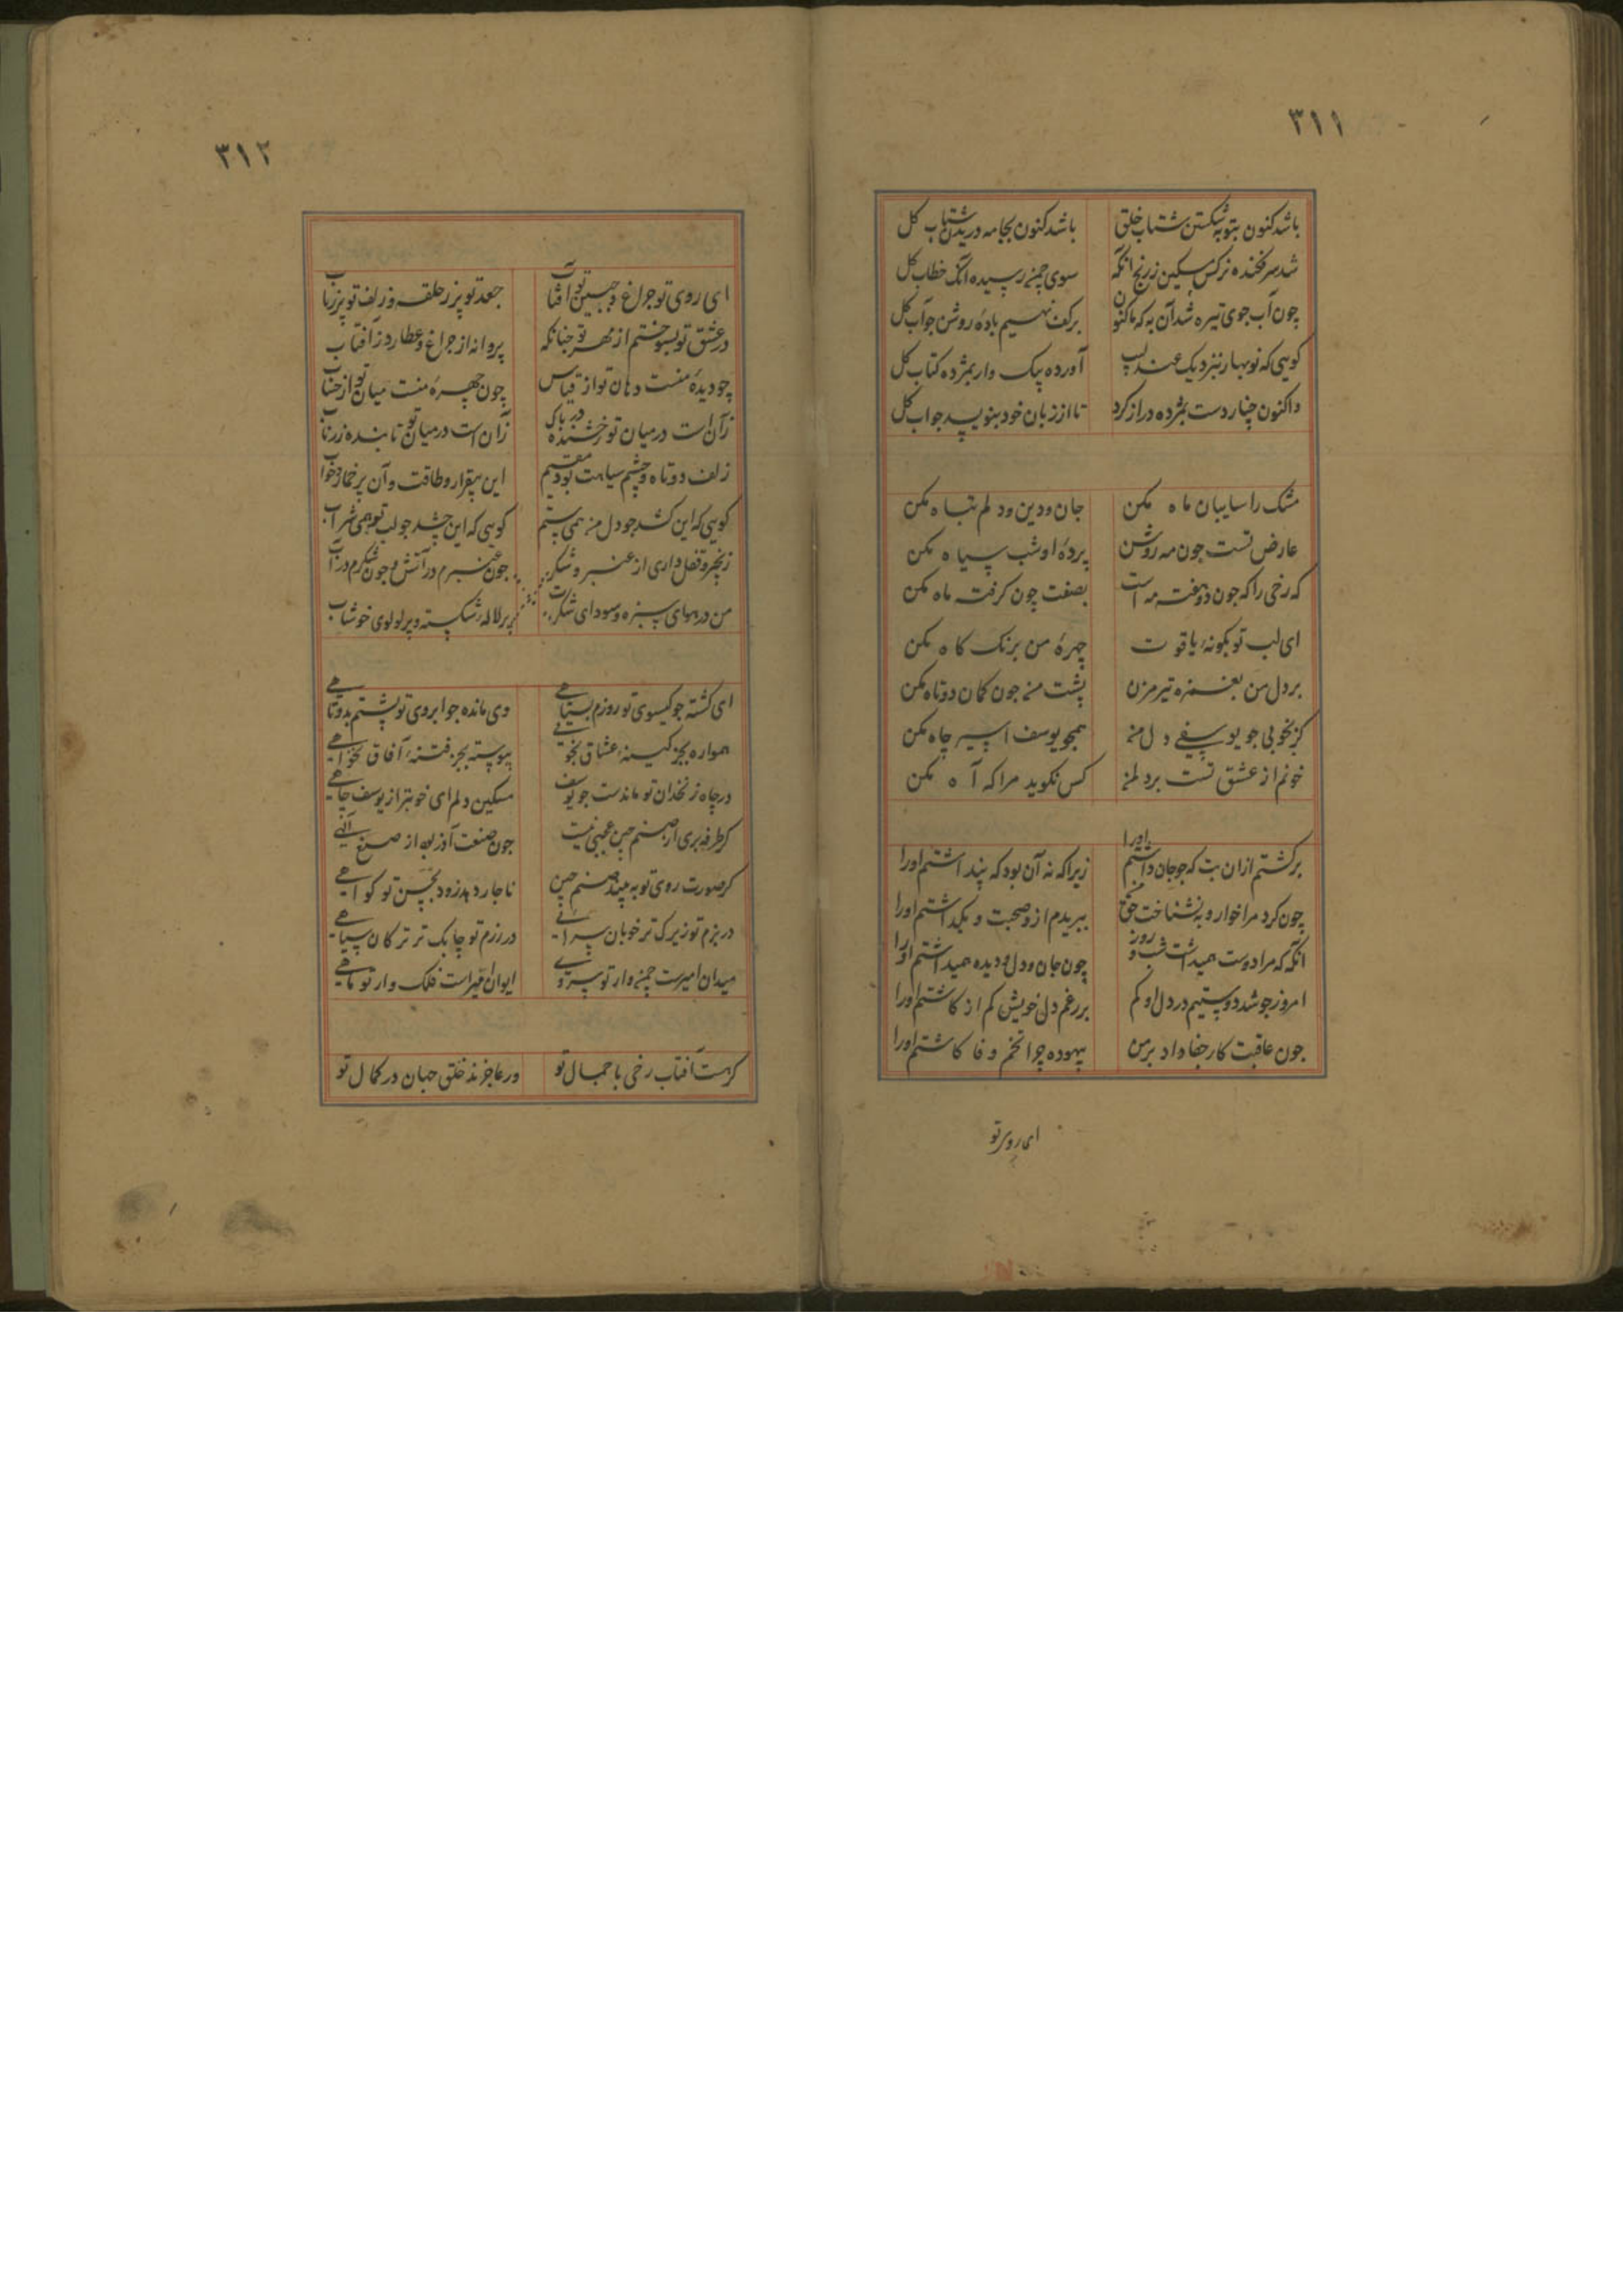 ٣١١
باشد کنون بتوبه شکستن شتاب خلق باشد کنون بجامه دریدن شتاب کل
شد سرفکنده نرکس مسکین ز رنج انکه سوی چمن رسیده آنک خطاب کل
چون آب جوی تیره شد آن به که ما کنون برکف نهیم بادۀ روشن جو آب کل
کویی که نوبهار بنزدیک عندلیب آورده پیک وار بمژده کتاب کل
واکنون چنار دست بمژده دراز کرد تا از زبان خود بنویسد جواب کل
مشک را سایبان ماه مکن جان و دین و دلم تباه مکن
عارض تست جون مه روشن پردۀ او شب سیاه مکن
که رخی را که جون دو هفته مه است بصفت چون کرفته ماه مکن
ای لب تو بکونۀ یاقوت چهرۀ من برنک کاه مکن
بر دل من بغمزه تیر مزن پشت من جون کمان دوتاه مکن
کر بخوبی جو یوسفی دل من همجو یوسف اسیر چاه مکن
خونم از عشق تست بر دل من کس نکوید مرا که آه مکن
برکشتم ازان بت که جو جان داشتم اورا زیرا که نه آن بود که پنداشتم اورا
چون کرد مرا خوار و به نشناخت حق من ببریدم ازو صحبت و بکذاشتم اورا
انکه که مرا دوست همیداشت شب و روز چون جان و دل و دیده همیداشتم اورا
امروز جو شد دوستیم در دل او کم بر رغم دل خویش کم انکاشتم اورا
جون عاقبت کار جفا داد بر من بیهوده چرا تخم وفا کاشتم اورا
ای روی تو
٣١٢
ای روی تو جراغ و جبین تو آفتاب جعد تو پر ز حلقه و زلف تو پر ز تاب
در عشق تو بسوختم از مهر تو جنانکه پروانه از جراغ و عطارد ز آفتاب
چو دیدۀ منست دهان تو از قیاس چون چهرۀ منست میان تو از حساب
زآن است در میان تو رخشنده در پاک زان است در میان تو تابنده زر ناب
زلف دوتاه و چشم سیاهت بود مقیم این بیقرار و طاقت و آن پر خمار و خواب
کویی که این کشد جو دل من همی ستم کویی که این چشد جو لب تو همی شراب
زنجیر و قفل داری از عنبر و شکر جون عنبرم در آتش و جون شکرم در آب
من در هوای سبزه و سودای شکرت بر لاله شکسته و بر لولوی خوشاب
ای کشته جو کیسوی تو روزم بسیاهی وی مانده جو ابروی تو پشتم بدوتاهی
همواره بجز کینۀ عشاق نجویی پیوسته بجز فتنۀ آفاق نخواهی
در چاه زنخدان تو ماندست جو یوسف مسکین دلم ای خوبتر از یوسف جاهی
کر طرفه بری از صنم چین عجبی نیست جون صنعت آذر بود از صنع الهی
کر صورت روی تو ببیند صنم چین ناجار دهد زود بحسن تو کواهی
در بزم تو زیرک تر خوبان سرائی در رزم تو چابک تر ترکان سپاهی
میدان امیرست چمن وار تو سروی ایوان امیراست فلک وار تو ماهی
کرهست آفتاب رخی با جمال تو ور عاجزند خلق جهان در کمال تو